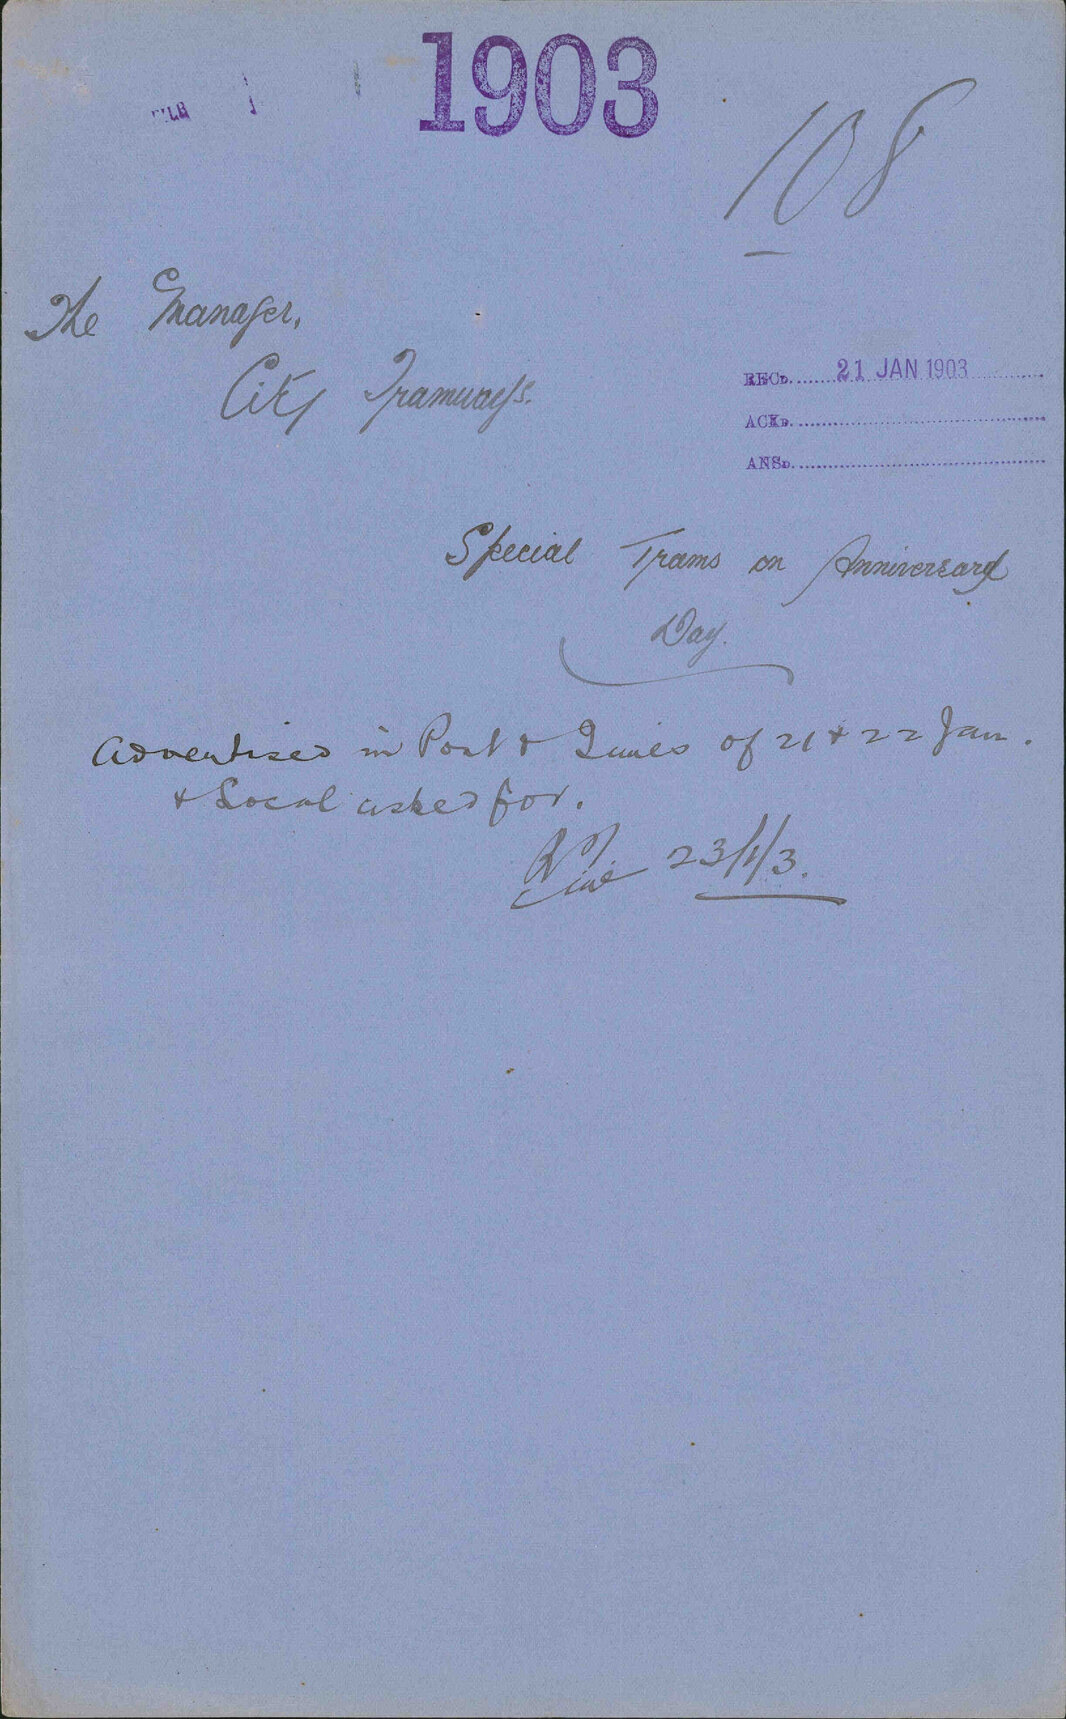 1903
108
The Manager,
City Tramways.
RECD. 21 JAN 1903
ACKD.
ANSD.
Special Trams on Anniversary
Day.
Advertised in Post & Times of 21 & 22 Jan.
& Local asked for.
23/1/3.